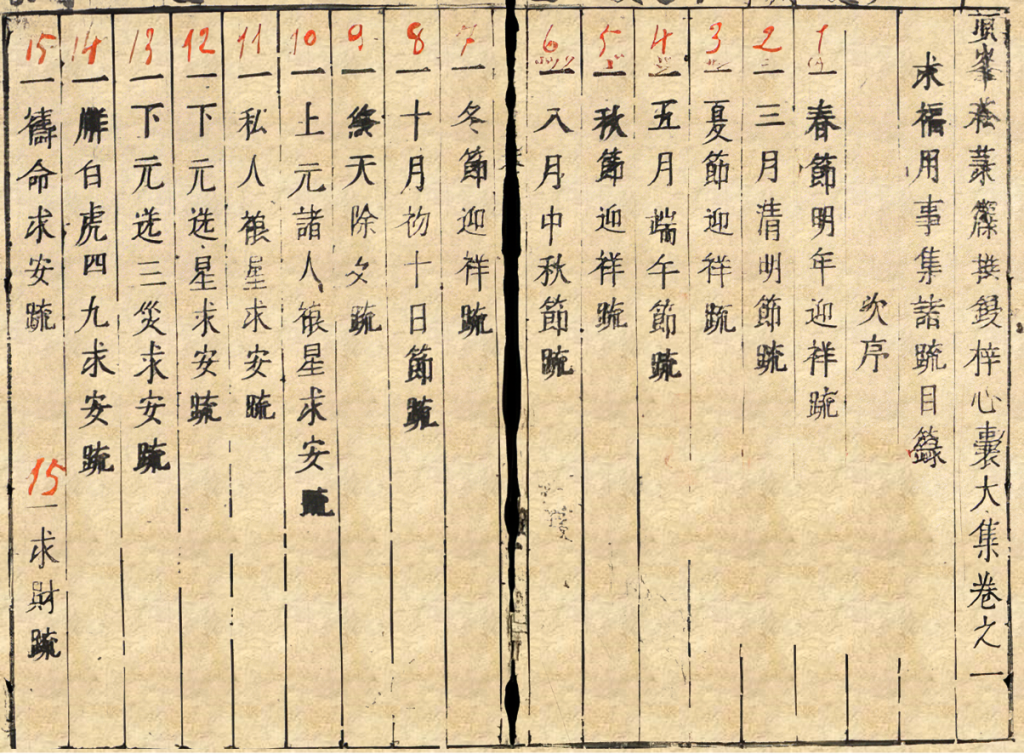 峯撰鋟梓心囊大集卷之一
求福用事集諸䟽目錄
次序
1 一春節明年迎祥䟽
2 一三月清明節䟽
3 一夏節迎祥䟽
4 一五月端午節䟽
5 一秋節迎祥䟽
6 一八月中秋節䟽
7 一冬節迎祥䟽
8 一十月初十日節䟽
9 一終天除夕䟽
10 一上元諸人禳星求安䟽
11 一私人禳星求安䟽
12 一下元送星求安䟽
13 一下元送三災求安䟽
14 一觧白虎四九求安䟽
15 一禱命求安䟽
15 一求財䟽